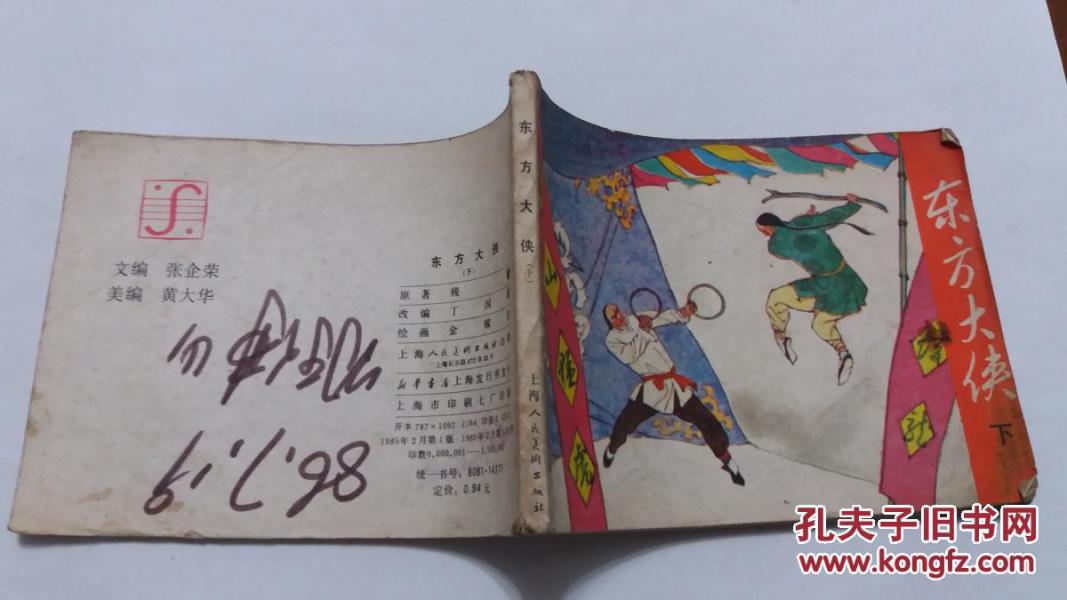 文编 张企荣
美编 黄大华
86.7.19
东方大侠
(下)
原著 残
改编 丁国
绘画 金
上海人民美术出版社
上海长乐路672弄33号
新华书店上海发行所发
上海市印刷七厂印
开本 787×1092 1/64 印张
1985年2月第1版 1985年2月第
印数 0,000,001—1,
统一书号: 8081·14
定价: 0.94元
东方大侠(下)
上海人民美术出版社
东方大侠
下
山
猛
虎
孔夫子旧书网
www.kongfz.com